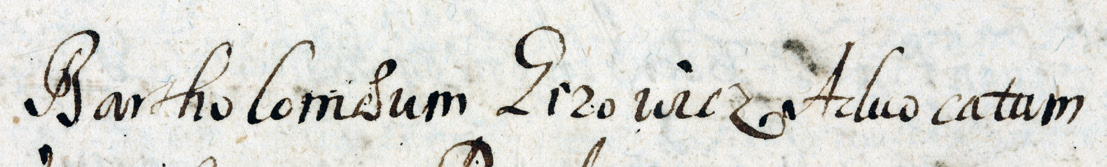 Bartholomeum Zyzowicz Advocatum